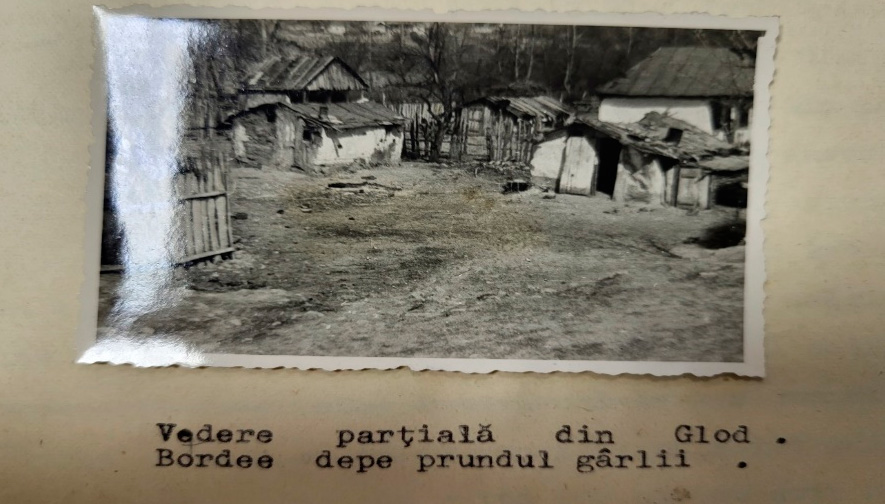 Vedere parţială din Glod .
Bordee depe prundul gârlii .